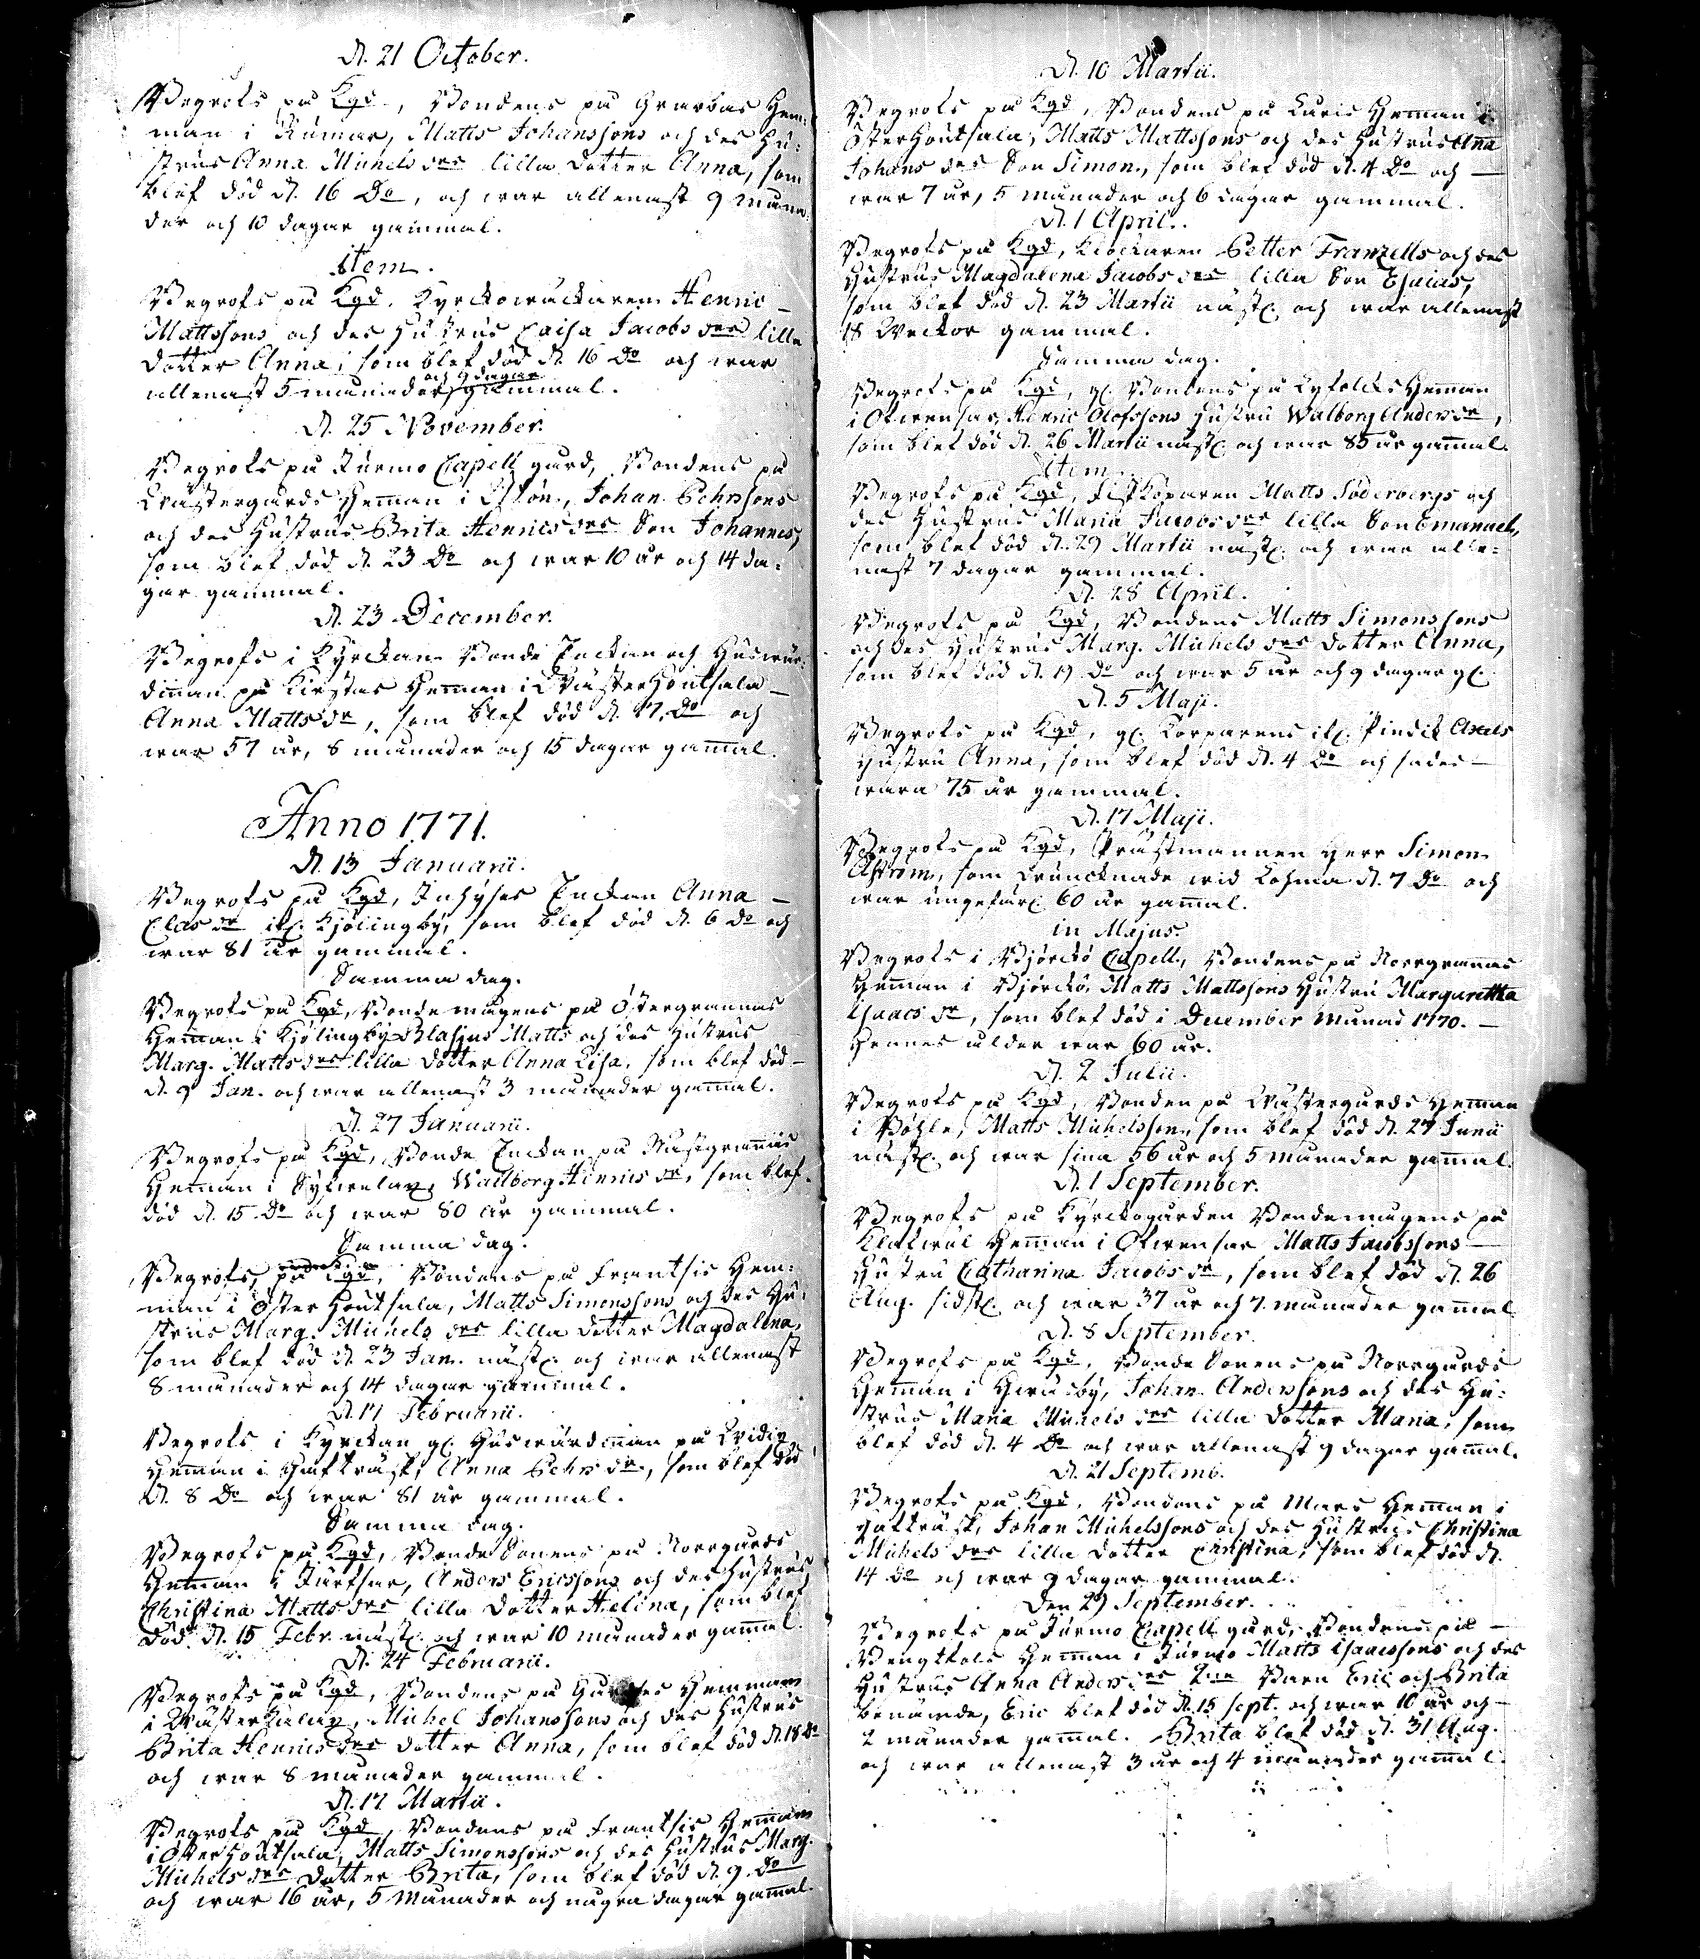 d. 21 October.
Begrofs på Kgd, Bondens på Grarbas Hem=
man i Kumar, Matts Johanssons och des Hu=
strus Anna Michels drs lilla dotter Anna, som
blef död d. 16 Do, och war allenast 9 måna
der och 10 dagar gammal.
Item.
Begrofs på Kgd, Kyrckowäcktaren Henric
Mattssons och des Hustrus Caisa Jacobs drs lilla
dotter Anna, som blef död d. 16 Do och war
allenast 5 månader och 9 dagar gammal.
d. 25 November.
Begrofs på Jurmo Capell gård, Bondens på
Wästergårds Heman i Johan Pehrssons
och des Hustrus Brita Henrics drs Son Johannes,
som blef död d. 23 Do och war 10 år och 14 da=
gar gammal.
d. 23 December.
Begrofs i Kyrckan Bonde Enckan och Huswär
dinnan på Kirstas Heman i Wäster Houtsala
Anna Matts dr, som blef död d. 17. Do och
war 57 år, 8 månader och 15 dagar gamal.
Anno 1771.
d. 13 Januarii.
Begrofs på Kgd, Inhyses Enckan Anna
Clas dr ifr. Kjölingby, som blef död d. 6 Do och
war 81 år gammal.
Samma dag.
Begrofs på Kgd, Bondemågens på Östergrannas
Heman i Kjölingby Blasius Matts och des Hustrus
Marg. Matts drs lilla dotter Anna Lisa, som blef död
d. 9 Jan. och war allenast 3 månader gamal.
d. 27 Januarii.
Begrofs på Kgd, Bonde Enckan på Nästgrannas
Heman i Sylwelax, Wallborg Henrics dr, som blef
död d. 15 Do och war 80 år gammal.
Samma dag.
Begrofs, på Kgd, Bondens på Frantsis Hem=
man i Öster Houtsala, Matts Simonssons och des Hu=
strus Marg. Michels drs lilla dotter Magdalena,
som blef död d. 23 Jan. nästl. och war allenast
8 månader och 14 dagar gammal.
d. 17 Februarii.
Begrofs i Kyrckan gl. Huswärdinnan på Widix
Heman i Hafträsk, Anna Pehrs dr, som blef död
d. 8 Do och war 81 år gammal.
Samma dag.
Begrofs på Kgd, Bonde Sonens på Norrgårds
Heman i Järfsar, Anders Ericssons och des Hustrus
Christina Matts drs lilla dotter Helena, som blef
död d. 15 Febr. nästl. och war 10 månader gamal.
d. 24 Februarii.
Begrofs på Kgd, Bondens på Hemman
i Wästerkulax, Michel Johanssons och des Hustrus
Brita Henrics drs dotter Anna, som blef död d. 18 Do
och war 8 månader gammal.
d. 17 Martii.
Begrofs på Kgd, Bondens på Frantsis Heman
i Öster Houtsala, Matts Simonssons och des Hustrus Marg.
Michels drs dotter Brita, som blef död d. 9. Do
och war 16 år, 5 Månader och några dagar gamal.
d. 10 Martii.
Begrofs på Kgd, Bondens på Laris Heman i
Öster Houtsala, Matts Mattssons och des Hustrus Ana
Johans drs Son Simon, som blef död d. 4 Do och
war 7 år, 5 månader och 6 dagar gammal.
d. 1 April.
Begrofs på Kgd, Klockaren Petter Franzells och des
Hustrus Magdalena Jacobs drs lilla Son Esaias,
som blef död d. 23 Martii nästl. och war allenast
18 Weckor gammal.
Samma dag.
Begrofs på Kgd, gl. Bondens på Heman
i Ofwensar, Henric Olofssons Hustru Walborg Anders dr,
som blef död d. 26 Martii nästl. och war 85 år gamal.
Item.
Begrofs på Kgd, Fiskköparen Matts Söderbergs och
des Hustrus Maria Jacobs drs lilla Son Emanuel,
som blef död d. 29 Martii nästl. och war alle=
nast 7 dagar gammal.
d. 28 April.
Begrofs på Kgd, Bondens Matts Simonssons
och des Hustrus Marg. Michels drs dotter Anna,
som blef död d. 19 Do och war 5 år och 9 dagar gl.
d. 5 Maji.
Begrofs på Kgd, gl. Torparens ifr. Axels
Hustru Anna, som blef död d. 4 Do och sades
wara 75 år gammal.
d. 17 Maji.
Begrofs på Kgd, Prästmannen Herr Simon
Aström, som druncknade wid Kohma d. 7 Do och
war ungefärl. 60 år gamal.
in Majus.
Begrofs i Björckö Capell, Bondens på Norrgrannas
Heman i Björckö, Matts Mattssons Hustru Margaretta
Isaacs dr, som blef död i December Månad 1770.
Hennes ålder war 60 år.
d. 2 Julii.
Begrofs på Kgd, Bonden på Wästergårds Heman
i Böhle, Matts Michelsson, som blef död d. 27 Junii
nästl. och war sina 56 år och 5 månader gamal.
d. 1 September.
Begrofs på Kyrckogården Bondemågens på
Heman i Ofwensar Matts Jacobssons
Hustru Catharina Jacobs dr, som blef död d. 26
Aug. sidstl. och war 37 år och 7 månader gamal
d. 8 September.
Begrofs på Kgd, Bonde Sonens på Norrgårds
Heman i Johan Anderssons och des Hu=
strus Maria Michels drs lilla dotter Maria, som
blef död d. 4 Do och war allenast 9 dagar gamal.
d. 21 Septemb.
Begrofs på Kgd, Bondens på Mars Heman i
Hafträsk, Johan Michelssons och des Hustrus Christina
Michels drs lilla dotter Christina, som blef död d.
14 Do och war 9 dagar gammal.
Den 29 September.
Begrofs på Jurmo Capell gård, Bondens på
Bengtfols Heman i Jurmo Matts Isaacssons och des
Hustrus Anna Anders drs 2ne Barn Eric och Brita
benämde, Eric blef död d. 15 Sept. och war 10 år och
2 månader gamal. Brita blef död d. 31 Aug.
och war allenast 3 år och 4 månader gamal.